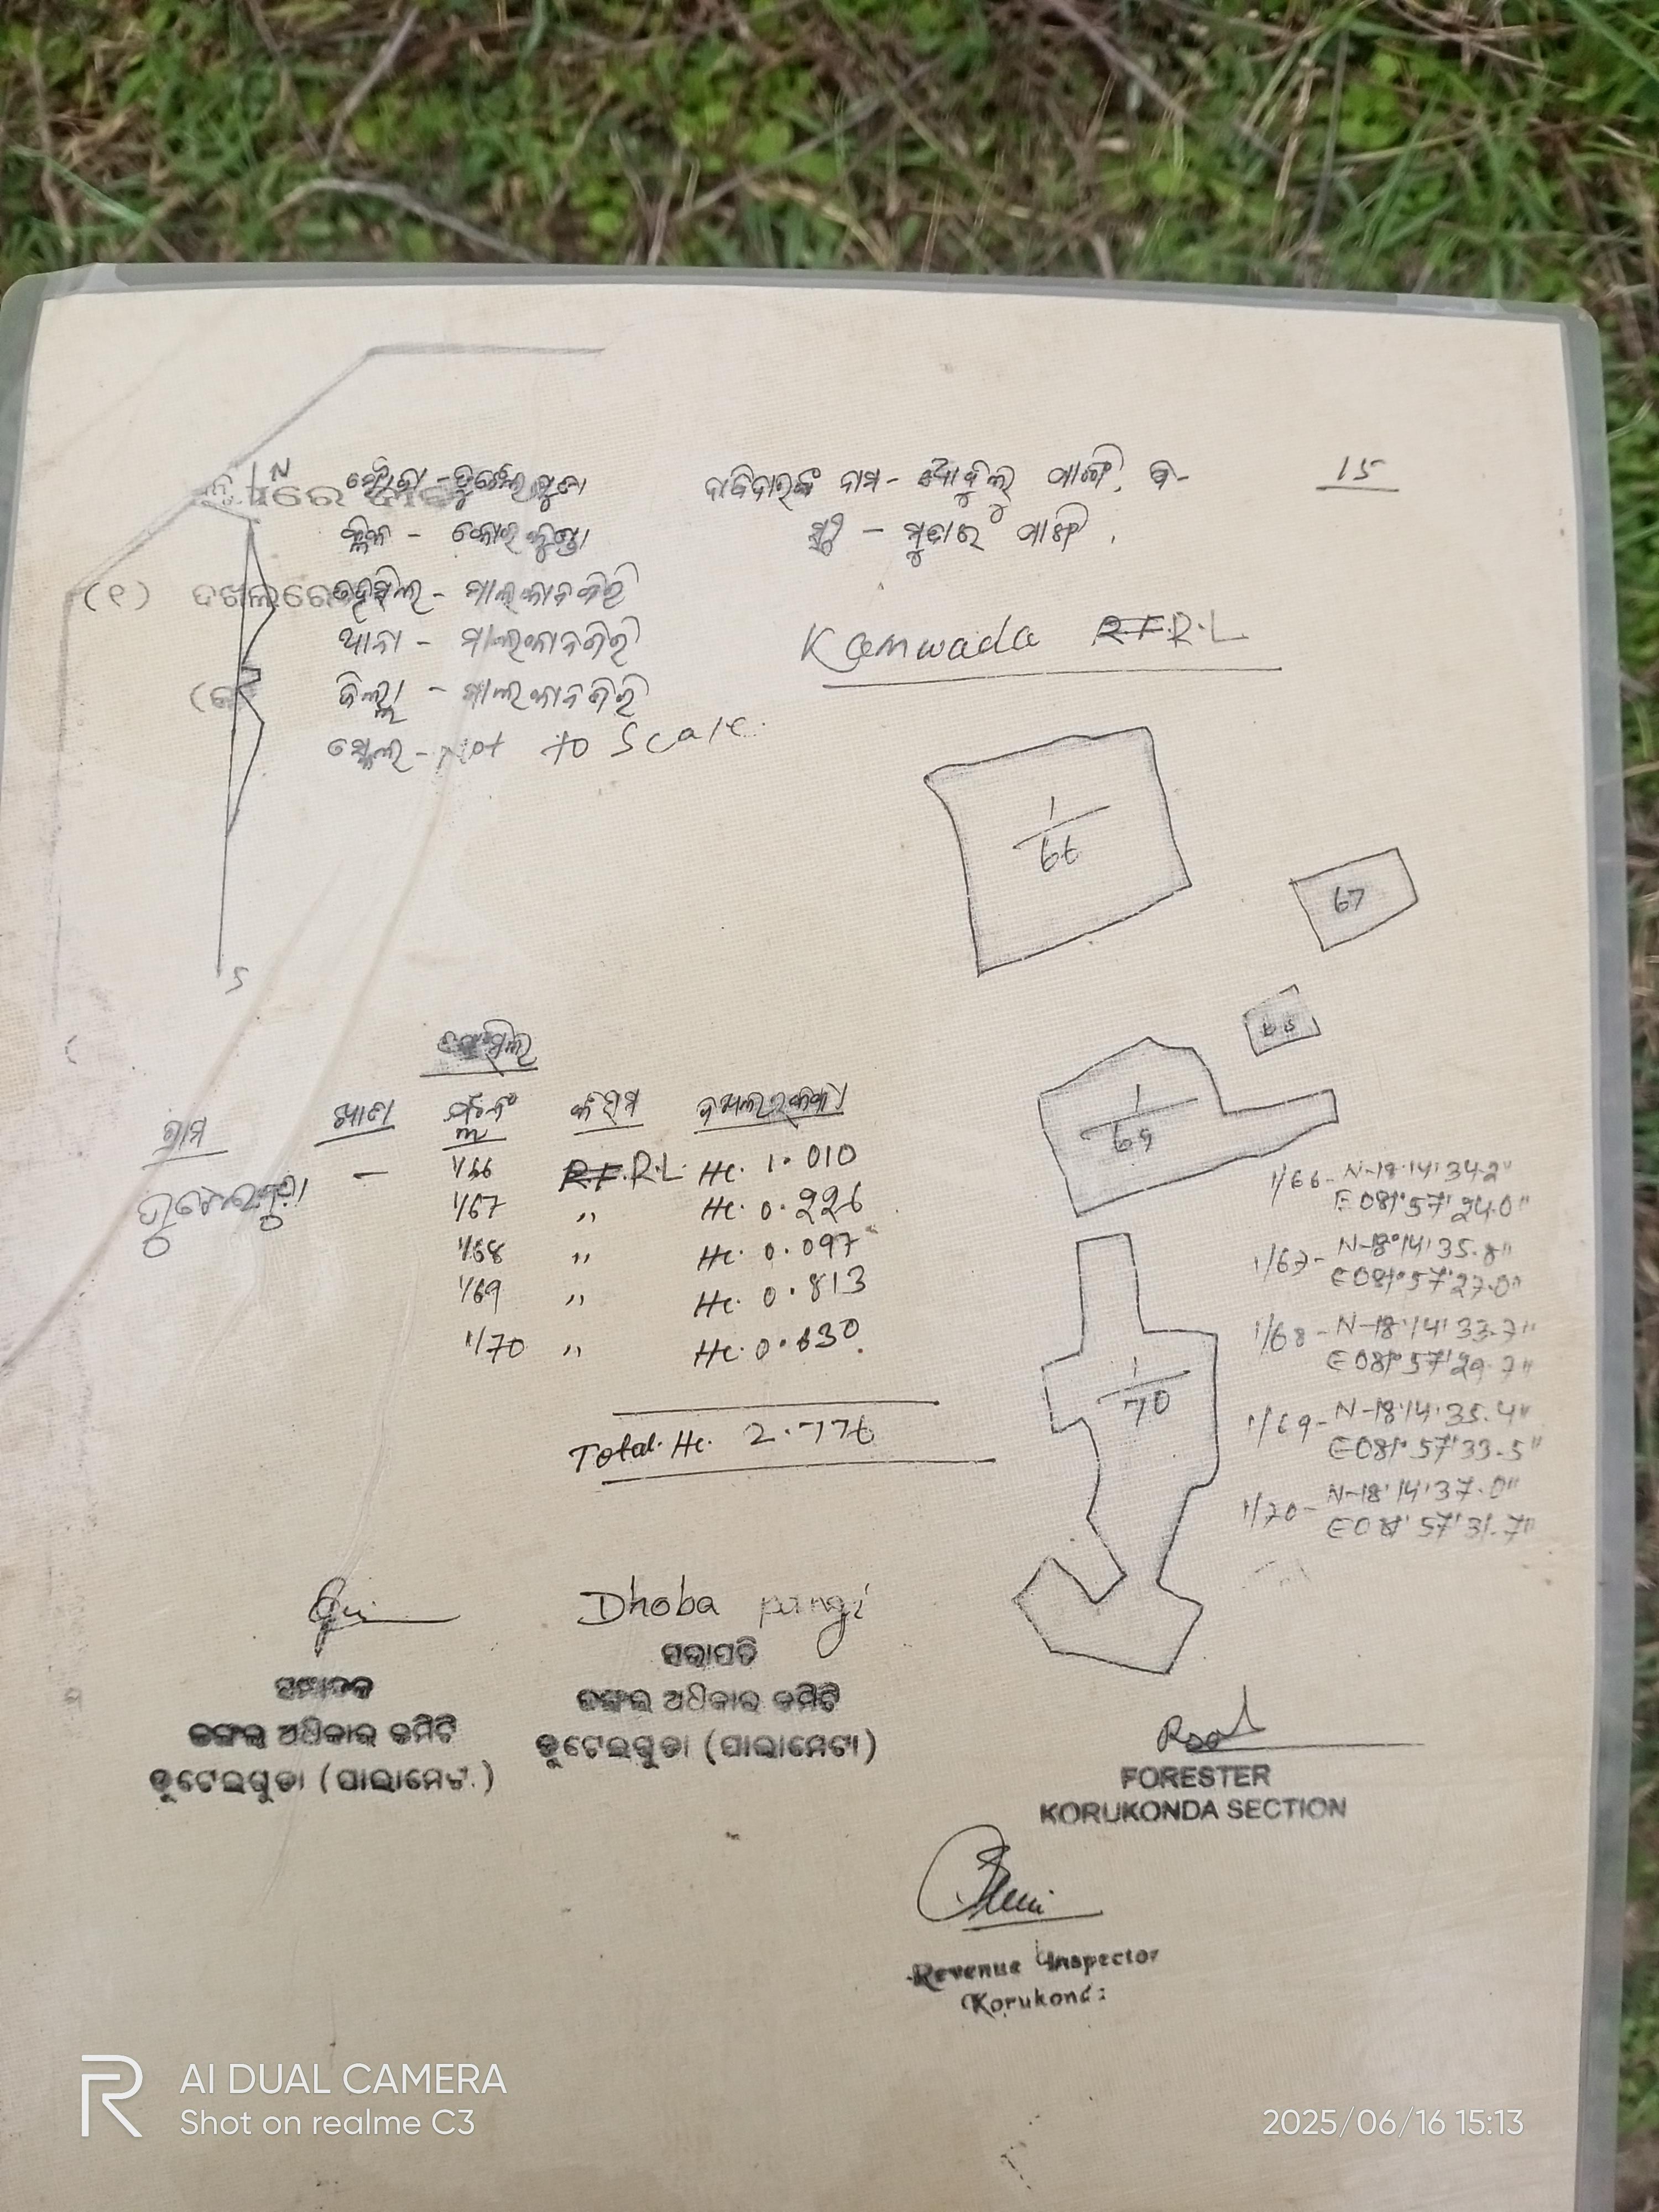 N
ମୌଜା - ଡୁଟେଲଗୁଡା
ଦାବିଦାରଙ୍କ ନାମ - ପାଙ୍ଗି,
15
ବ୍ଲକ - କୋରକୁଣ୍ଡା
ସ୍ତ୍ରୀ - ମୁଦାଇ ପାଙ୍ଗି.
(୧) ଦଖଲରେ
ତହସିଲ - ମାଲକାନଗିରି
ଥାନା - ମାଲକାନଗିରି
Kamwada R.F. R.L
ଜିଲ୍ଲା - ମାଲକାନଗିରି
ସ୍କେଲ - Not to Scale.
1/66
67
S
68
1/69
ତଫସିଲ
ଗ୍ରାମ ଖାତା ପ୍ଲଟ ନଂ କିସମ ଦଖଲ ରକବା
ଡୁଟେଲଗୁଡା - 1/66 R.F. R.L. Hc. 1.010
1/67 " Hc. 0.226
1/68 " Hc. 0.097
1/69 " Hc. 0.813
1/70 " Hc. 0.630
Total. Hc. 2.776
1/66 - N-18°14'34.2"
E081°57'24.0"
1/67 - N-18°14'35.8"
E081°57'27.0"
1/68 - N-18°14'33.7"
E081°57'29.7"
1/69 - N-18°14'35.4"
E081°57'33.5"
1/70 - N-18°14'37.0"
E081°57'31.7"
1/70
Dhoba pangi
ସମ୍ପାଦକ
ଜଙ୍ଗଲ ଅଧିକାର କମିଟି
ଡୁଟେଲଗୁଡା (ପାଲାମେଟା)
ସଭାପତି
ଜଙ୍ଗଲ ଅଧିକାର କମିଟି
ଡୁଟେଲଗୁଡା (ପାଲାମେଟା)
FORESTER
KORUKONDA SECTION
Revenue Inspector
Korukond
AI DUAL CAMERA
Shot on realme C3
2025/06/16 15:13